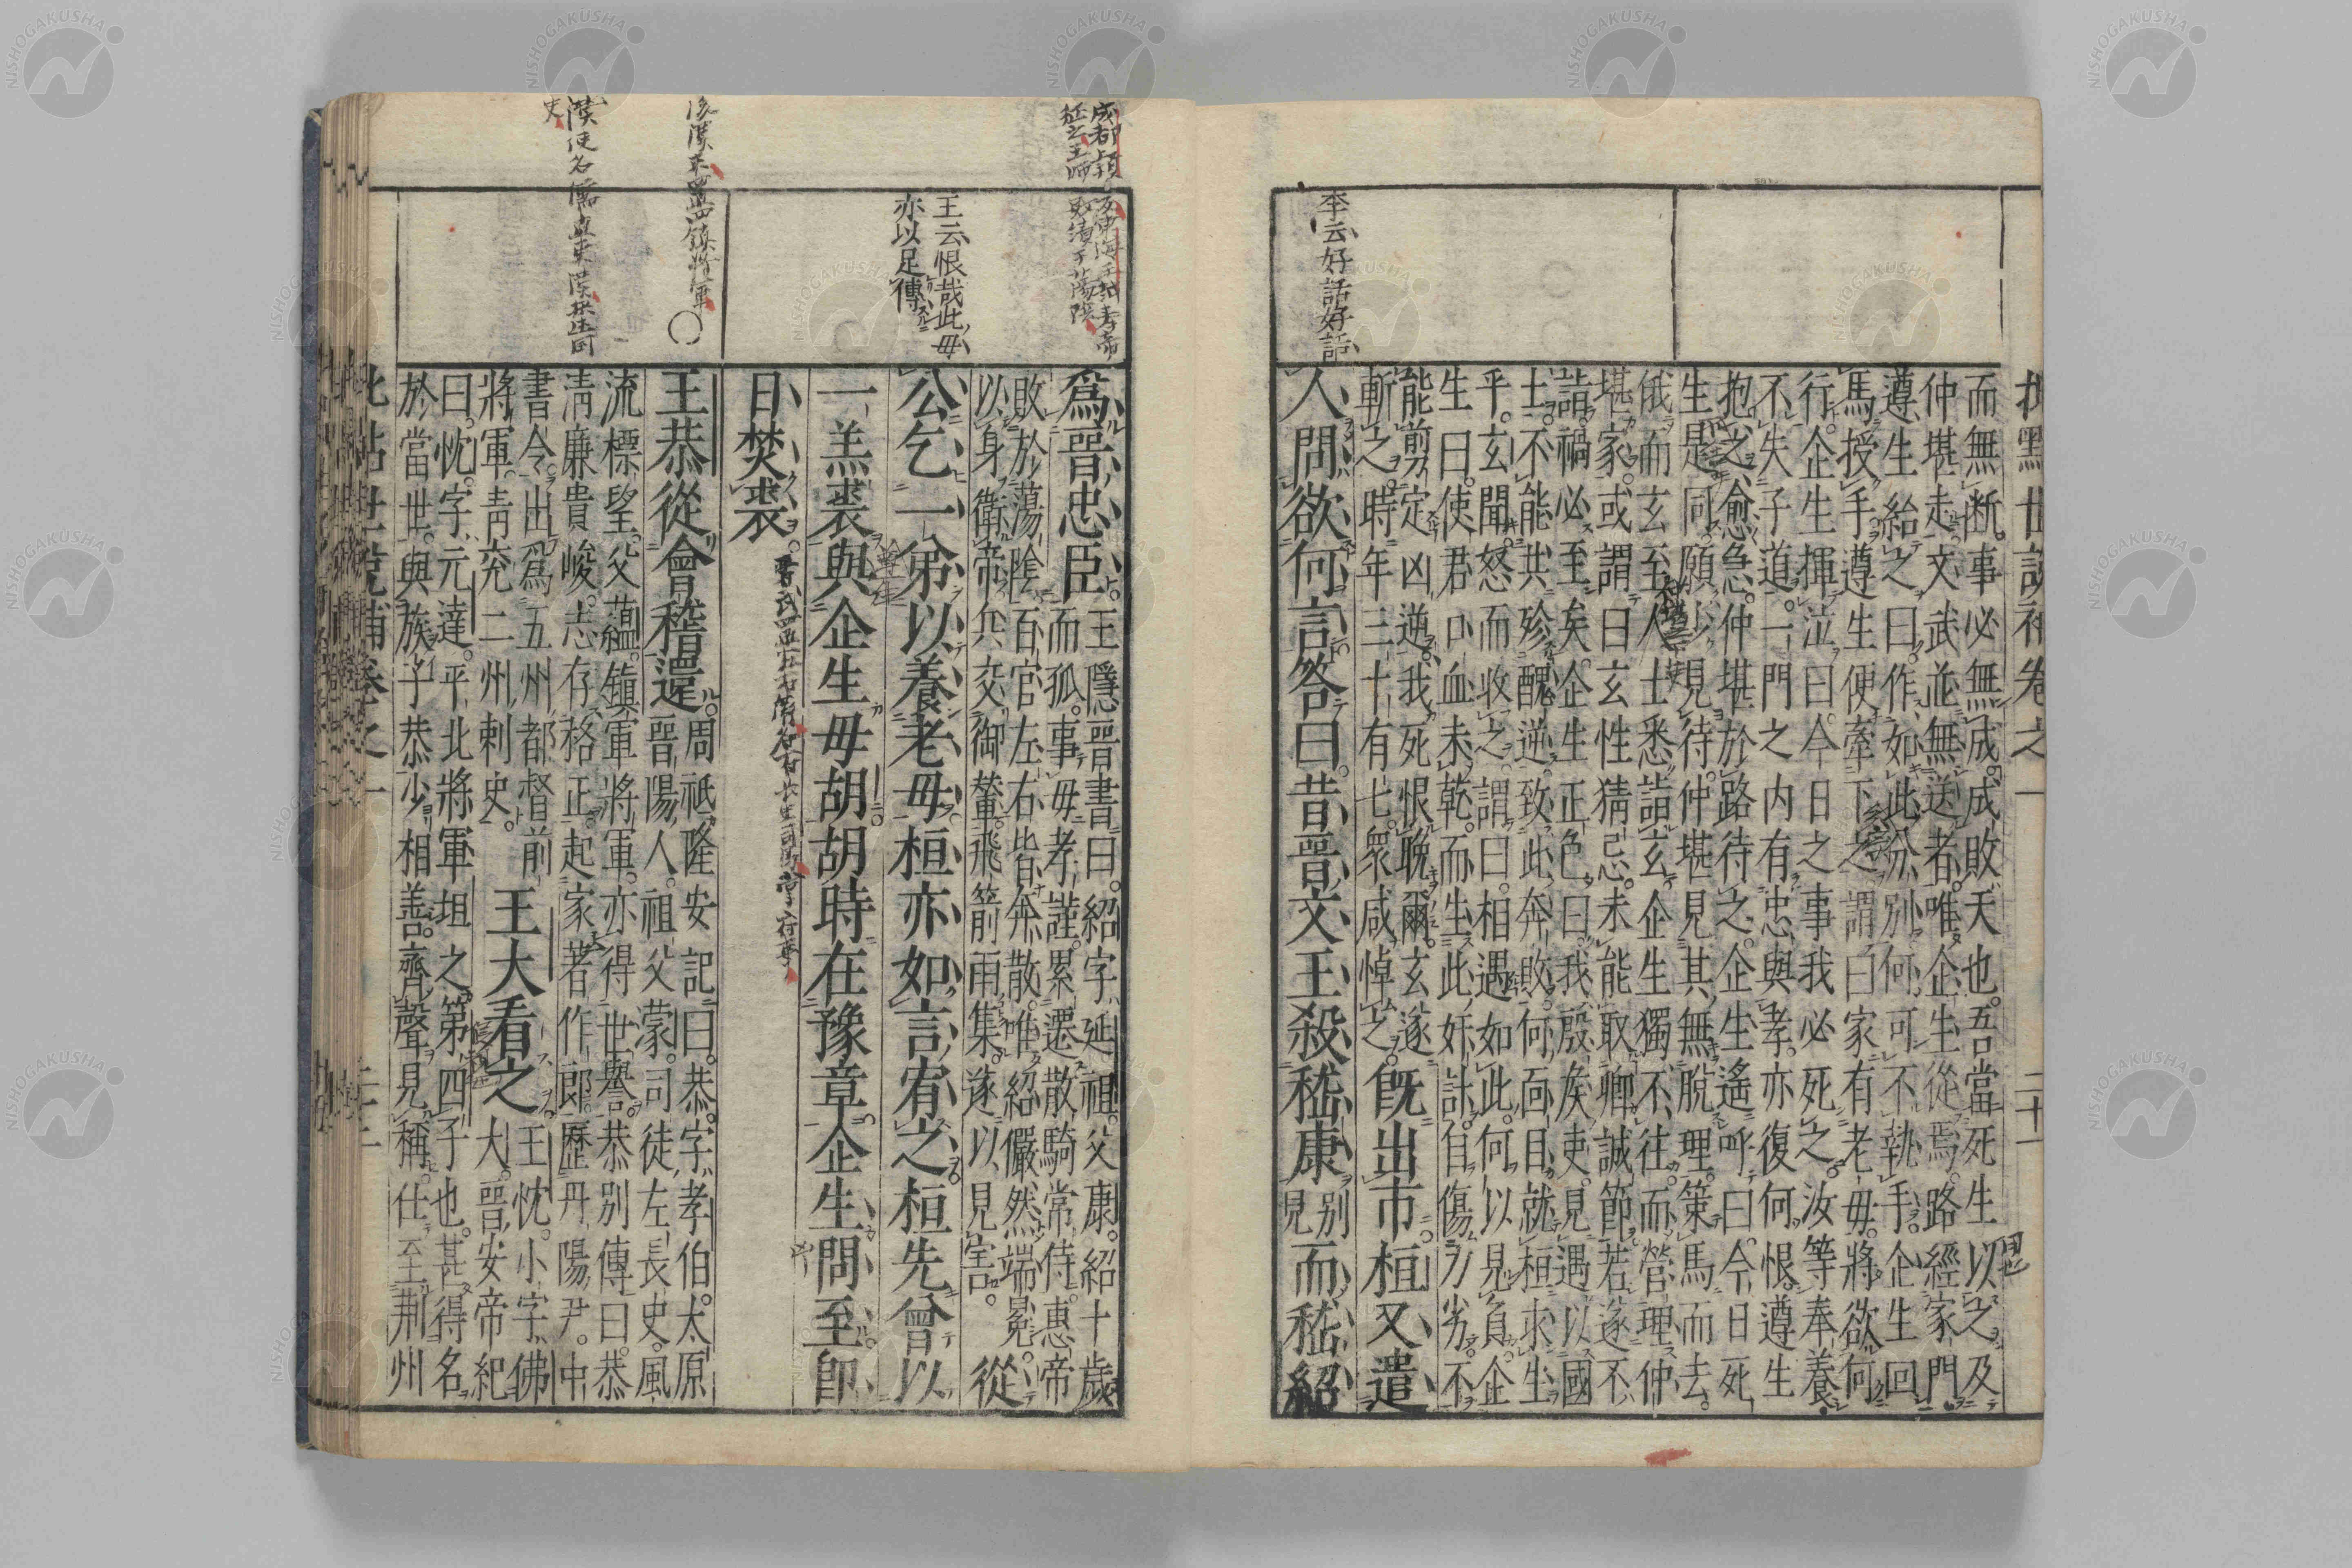 批點世說補卷之一
二十一
而無斷事必無成成敗天也吾當死生以之及
仲堪走文武並無送者唯企生從焉路經家門
遵生紿之曰作如此分別何可不執手企生回
馬授手遵生便牽下之謂曰家有老母將欲何
行企生揮泣曰今日之事我必死之汝等奉養
不失子道一門之內有忠與孝亦復何恨遵生
抱之愈急仲堪於路待之企生遙呼曰今日死
生是同願少見待仲堪見其無脫理策馬而去
俄而玄至人士悉詣玄企生獨不往而營理仲
堪家或謂曰玄性猜忌未能取卿誠節若遂不
詣禍必至矣企生正色曰我殷侯吏見遇以國
士不能共殄醜逆致此奔敗何面目就桓求生
乎玄聞怒而收之謂曰相遇如此何以見負企
生曰使君口血未乾而生此奸計自傷力劣不
能剪定凶逆我死恨晚爾玄遂
斬之時年三十有七衆咸悼之旣出市桓又遣
人問欲何言答曰昔晉文王殺嵇康別見而嵇紹
李云好話好話
爲晉忠臣王隱晉書曰紹字延祖父康紹十歲
而孤事母孝謹累遷散騎常侍惠帝
敗於蕩陰百官左右皆奔散唯紹儼然端冕
以身衛帝兵交御輦飛箭雨集遂以見害從
公乞一弟以養老母桓亦如言宥之桓先曾以
一羔裘與企生母胡胡時在豫章企生問至卽
日焚裘
王云恨哉此母
亦以足傳
王恭從會稽還周祗隆安記曰恭字孝伯太原
晉陽人祖父蒙司徒左長史風
流標望父蘊鎮軍將軍亦得世譽恭別傳曰恭
淸廉貴峻志存格正起家著作郎歷丹陽尹中
書令出爲五州都督前
將軍靑兗二州刺史王大看之大王忱小字佛
大晉安帝紀
曰忱字元達平北將軍坦之第四子也甚得名
於當世與族子恭少相善齊聲見稱仕至荆州